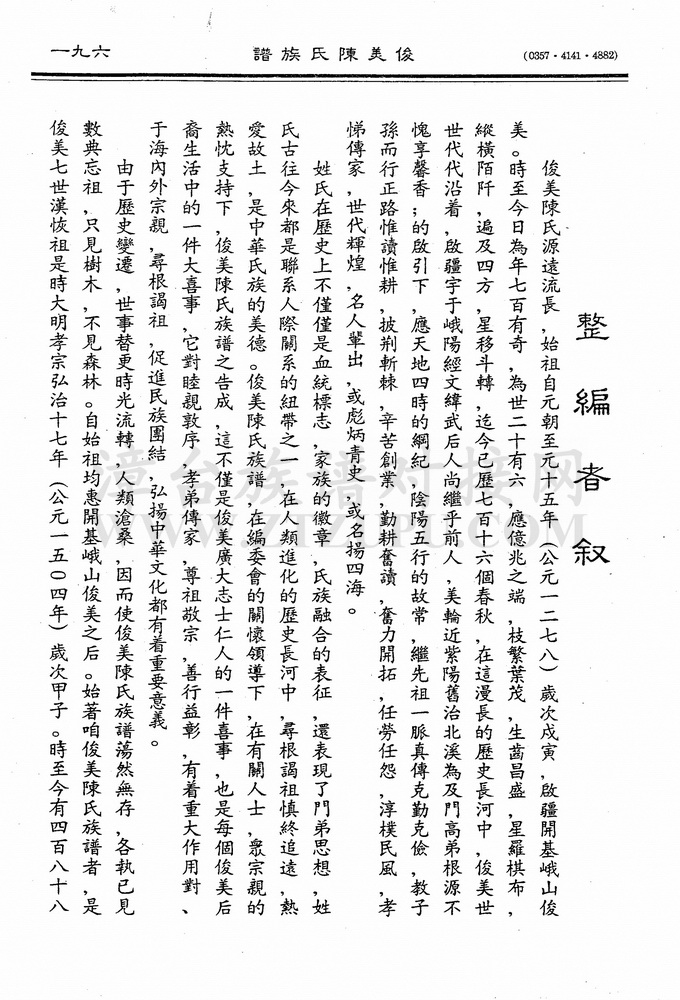 一九六
俊美陳氏族譜
(0357·4141·4882)
整編者叙
俊美陳氏源遠流長，始祖自元朝至元十五年（公元一二七八）歲次戊寅，啟疆開基峨山俊
美。時至今日為年七百有奇，為世二十有六，應億兆之端，枝繁葉茂，生齒昌盛，星羅棋布，
縱橫陌阡，遍及四方，星移斗轉，迄今已歷七百十六個春秋，在這漫長的歷史長河中，俊美世
世代代沿着，啟疆宇于峨陽經文緯武后人尚繼乎前人，美輪近紫陽舊治北溪為及門高弟根源不
愧享馨香；的啟引下，應天地四時的綱紀，陰陽五行的故常，繼先祖一脈真傳克勤克儉，教子
孫而行正路惟讀惟耕，披荆斬棘，辛苦創業，勤耕奮讀，奮力開拓，任勞任怨，淳樸民風，孝
悌傳家，世代輝煌，名人輩出，或彪炳青史，或名揚四海。
姓氏在歷史上不僅僅是血統標志，家族的徽章，氏族融合的表征，還表現了門弟思想，姓
氏古往今來都是聯系人際關系的紐帶之一，在人類進化的歷史長河中，尋根謁祖慎終追遠，熱
愛故土，是中華民族的美德。俊美陳氏族譜，在編委會的關懷領導下，在有關人士，衆宗親的
熱忱支持下，俊美陳氏族譜之告成，這不僅是俊美廣大志士仁人的一件喜事，也是每個俊美后
裔生活中的一件大喜事，它對睦親敦序，孝弟傳家，尊祖敬宗，善行益彰，有着重大作用對、
于海內外宗親，尋根謁祖，促進民族團結，弘揚中華文化都有着重要意義。
由于歷史變遷，世事替更時光流轉，人類滄桑，因而使俊美陳氏族譜蕩然無存，各執已見
數典忘祖，只見樹木，不見森林。自始祖均惠開基峨山俊美之后。始著咱俊美陳氏族譜者，是
俊美七世漢恢祖是時大明孝宗弘治十七年（公元一五〇四年）歲次甲子。時至今有四百八十八
漳台族譜對接網
WWW.ZTZUPU.COM